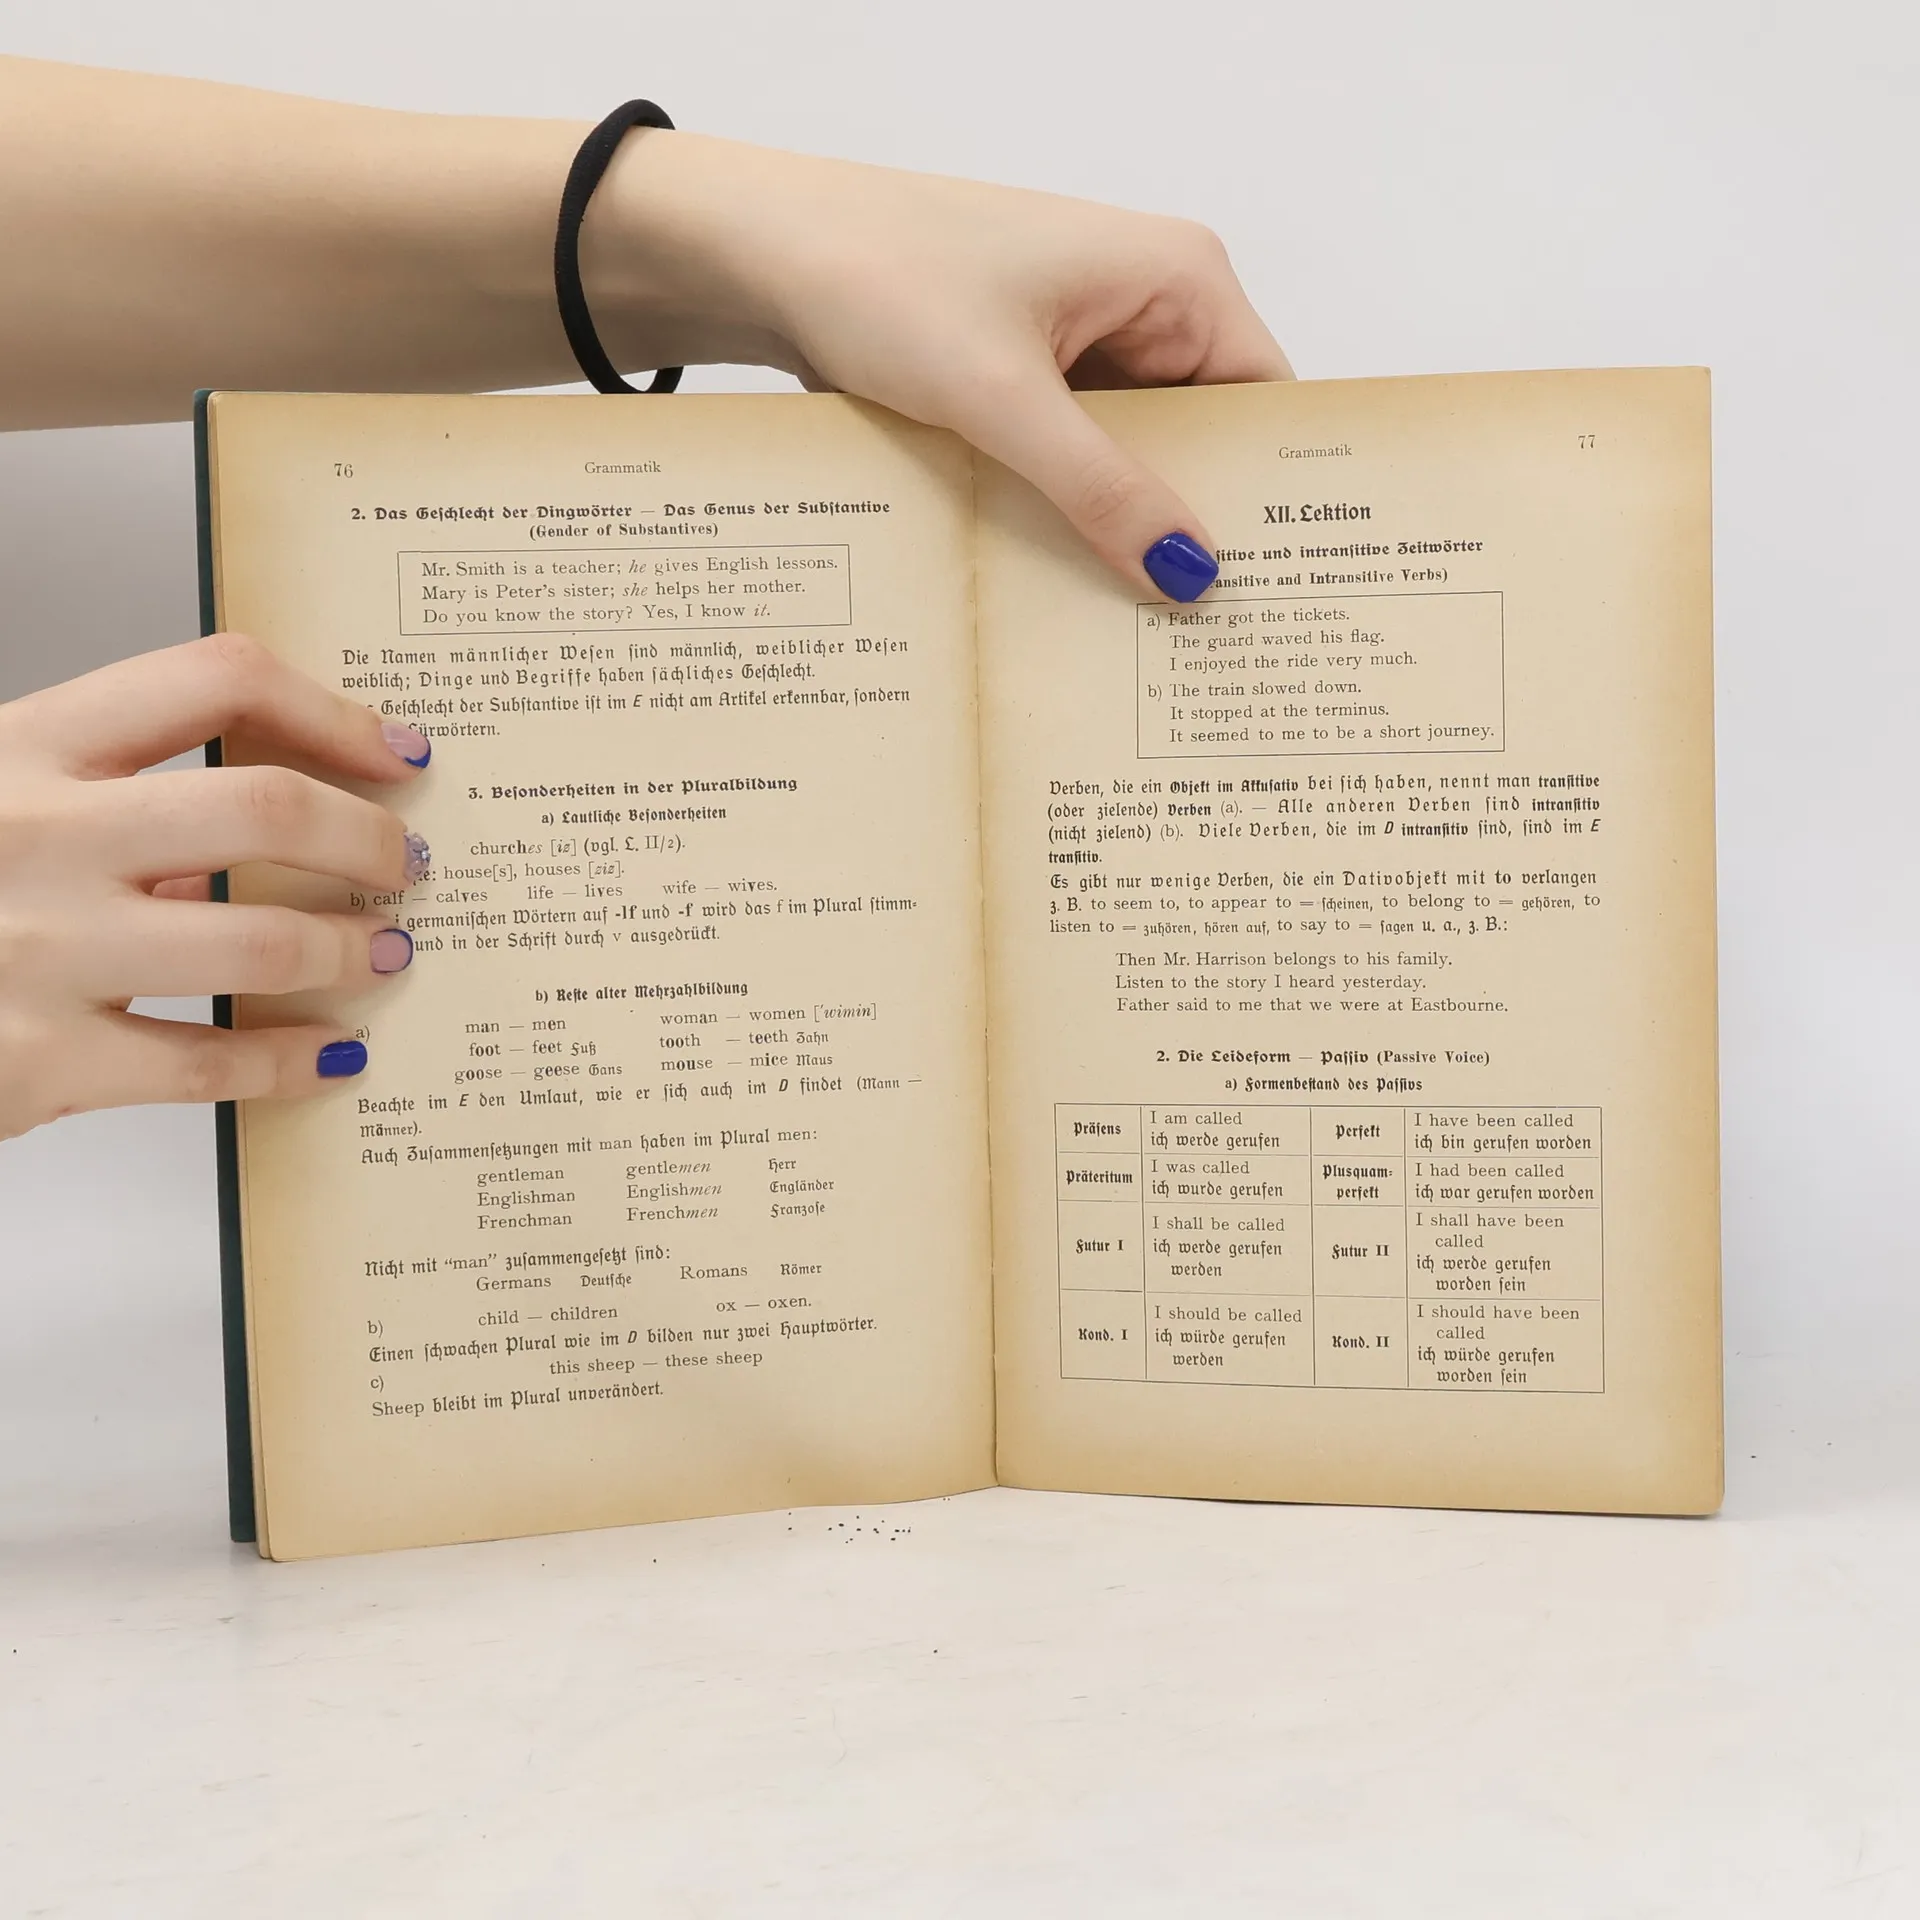 76
Grammatik
2. Das Geschlecht der Dingwörter — Das Genus der Substantive
(Gender of Substantives)
Mr. Smith is a teacher; he gives English lessons.
Mary is Peter's sister; she helps her mother.
Do you know the story? Yes, I know it.
Die Namen männlicher Wesen sind männlich, weiblicher Wesen
weiblich; Dinge und Begriffe haben sächliches Geschlecht.
Geschlecht der Substantive ist im E nicht am Artikel erkennbar, sondern
Fürwörtern.
3. Besonderheiten in der Pluralbildung
a) Lautliche Besonderheiten
churches [iz] (vgl. L. II/2).
house[s], houses [ziz].
b) calf — calves life — lives wife — wives.
germanischen Wörtern auf -lf und -f wird das f im Plural stimm=
und in der Schrift durch v ausgedrückt.
b) Reste alter Mehrzahlbildung
a) man — men woman — women ['wimin]
foot — feet Fuß tooth — teeth Zahn
goose — geese Gans mouse — mice Maus
Beachte im E den Umlaut, wie er sich auch im D findet (Mann —
Männer).
Auch Zusammensetzungen mit man haben im Plural men:
gentleman gentlemen Herr
Englishman Englishmen Engländer
Frenchman Frenchmen Franzose
Nicht mit “man” zusammengesetzt sind:
Germans Deutsche Romans Römer
b) child — children ox — oxen.
Einen schwachen Plural wie im D bilden nur zwei Hauptwörter.
c) this sheep — these sheep
Sheep bleibt im Plural unverändert.
Grammatik
77
XII. Lektion
sitive und intransitive Zeitwörter
ansitive and Intransitive Verbs)
a) Father got the tickets.
The guard waved his flag.
I enjoyed the ride very much.
b) The train slowed down.
It stopped at the terminus.
It seemed to me to be a short journey.
Verben, die ein Objekt im Akkusativ bei sich haben, nennt man transitive
(oder zielende) Verben (a). — Alle anderen Verben sind intransitiv
(nicht zielend) (b). Viele Verben, die im D intransitiv sind, sind im E
transitiv.
Es gibt nur wenige Verben, die ein Dativobjekt mit to verlangen
z. B. to seem to, to appear to = scheinen, to belong to = gehören, to
listen to = zuhören, hören auf, to say to = sagen u. a., z. B.:
Then Mr. Harrison belongs to his family.
Listen to the story I heard yesterday.
Father said to me that we were at Eastbourne.
2. Die Leideform — Passiv (Passive Voice)
a) Formenbestand des Passivs
Präsens
I am called
ich werde gerufen
Perfekt
I have been called
ich bin gerufen worden
Präteritum
I was called
ich wurde gerufen
Plusquam=
perfekt
I had been called
ich war gerufen worden
Futur I
I shall be called
ich werde gerufen
werden
Futur II
I shall have been
called
ich werde gerufen
worden sein
Kond. I
I should be called
ich würde gerufen
werden
Kond. II
I should have been
called
ich würde gerufen
worden sein